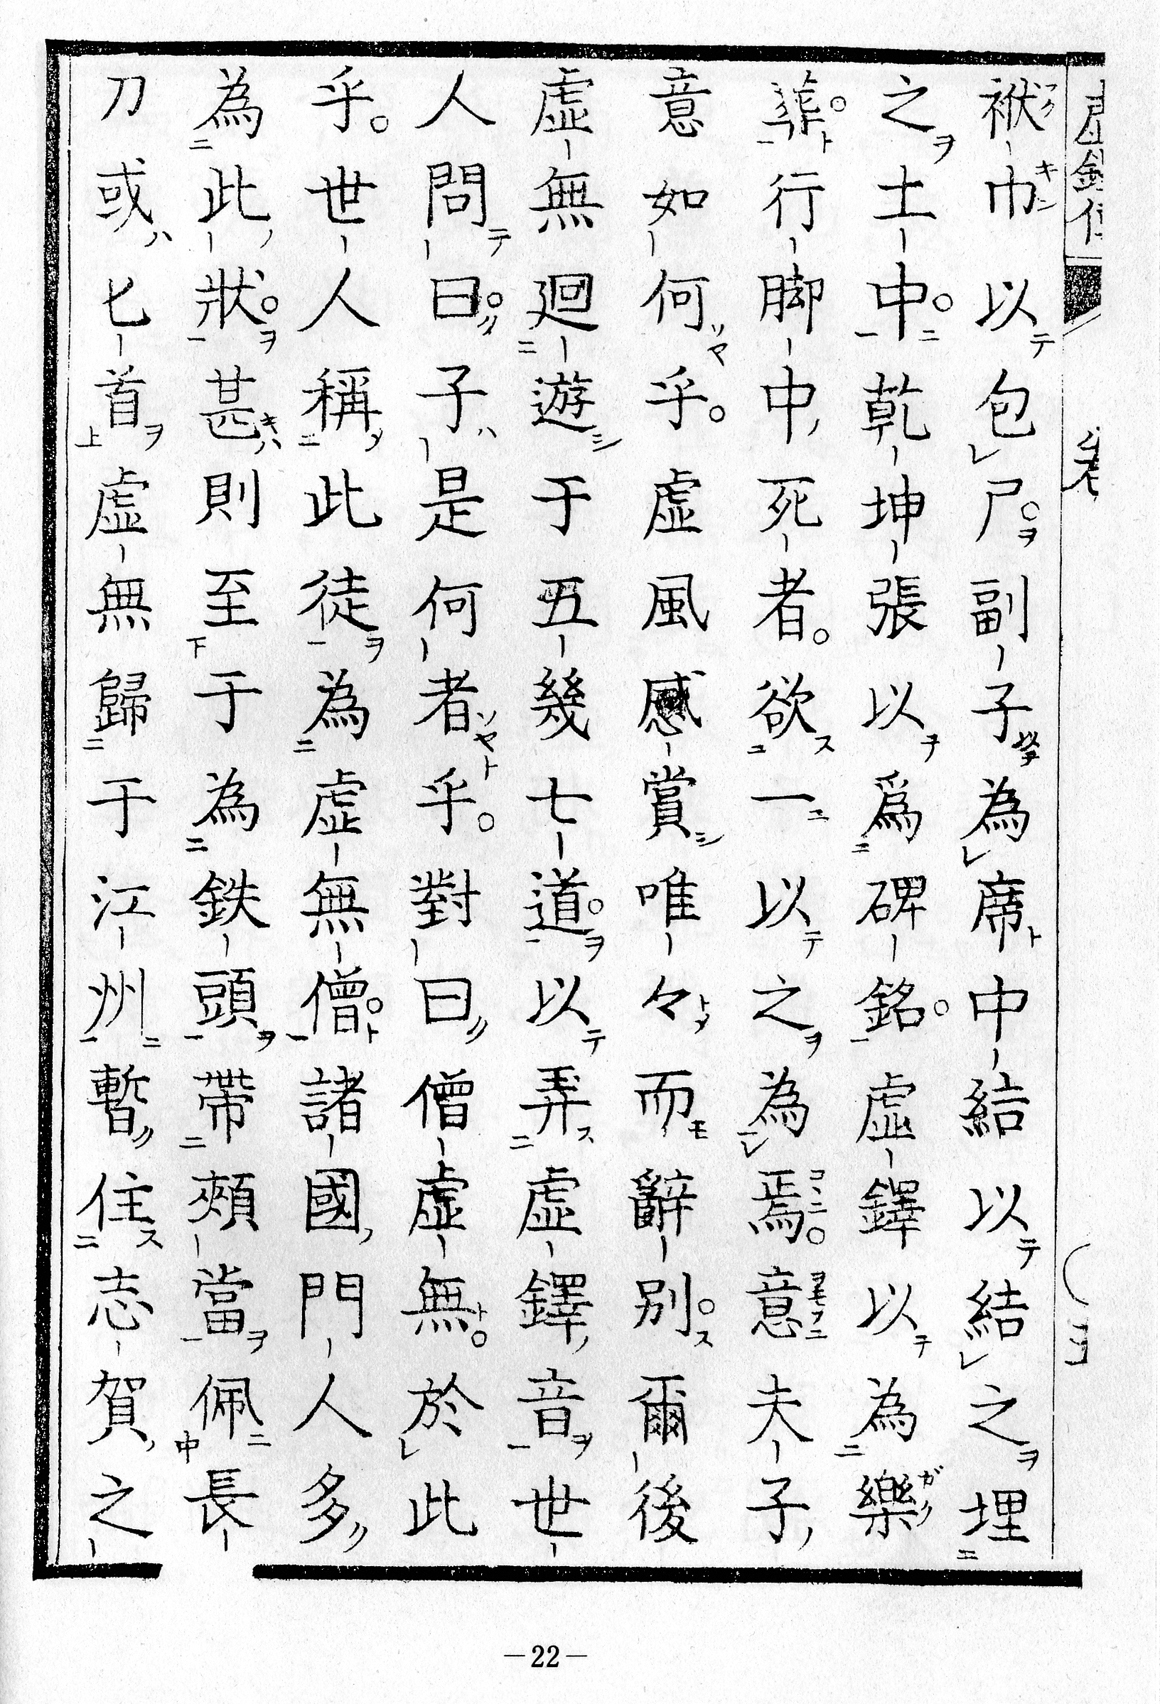 袱巾以包尸副子為席中結以結之埋
之土中乾坤張以爲碑銘虛鐸以為樂
葬行脚中死者欲一以之為焉意夫子
意如何乎虛風感賞唯々而辭別爾後
虛無廻遊于五幾七道以弄虛鐸音世
人問曰子是何者乎對曰僧虛無於此
乎世人稱此徒為虛無僧諸國門人多
為此狀甚則至于為鉄頭帶頰當佩長
刀或匕首虛無歸于江州暫住志賀之
－22－